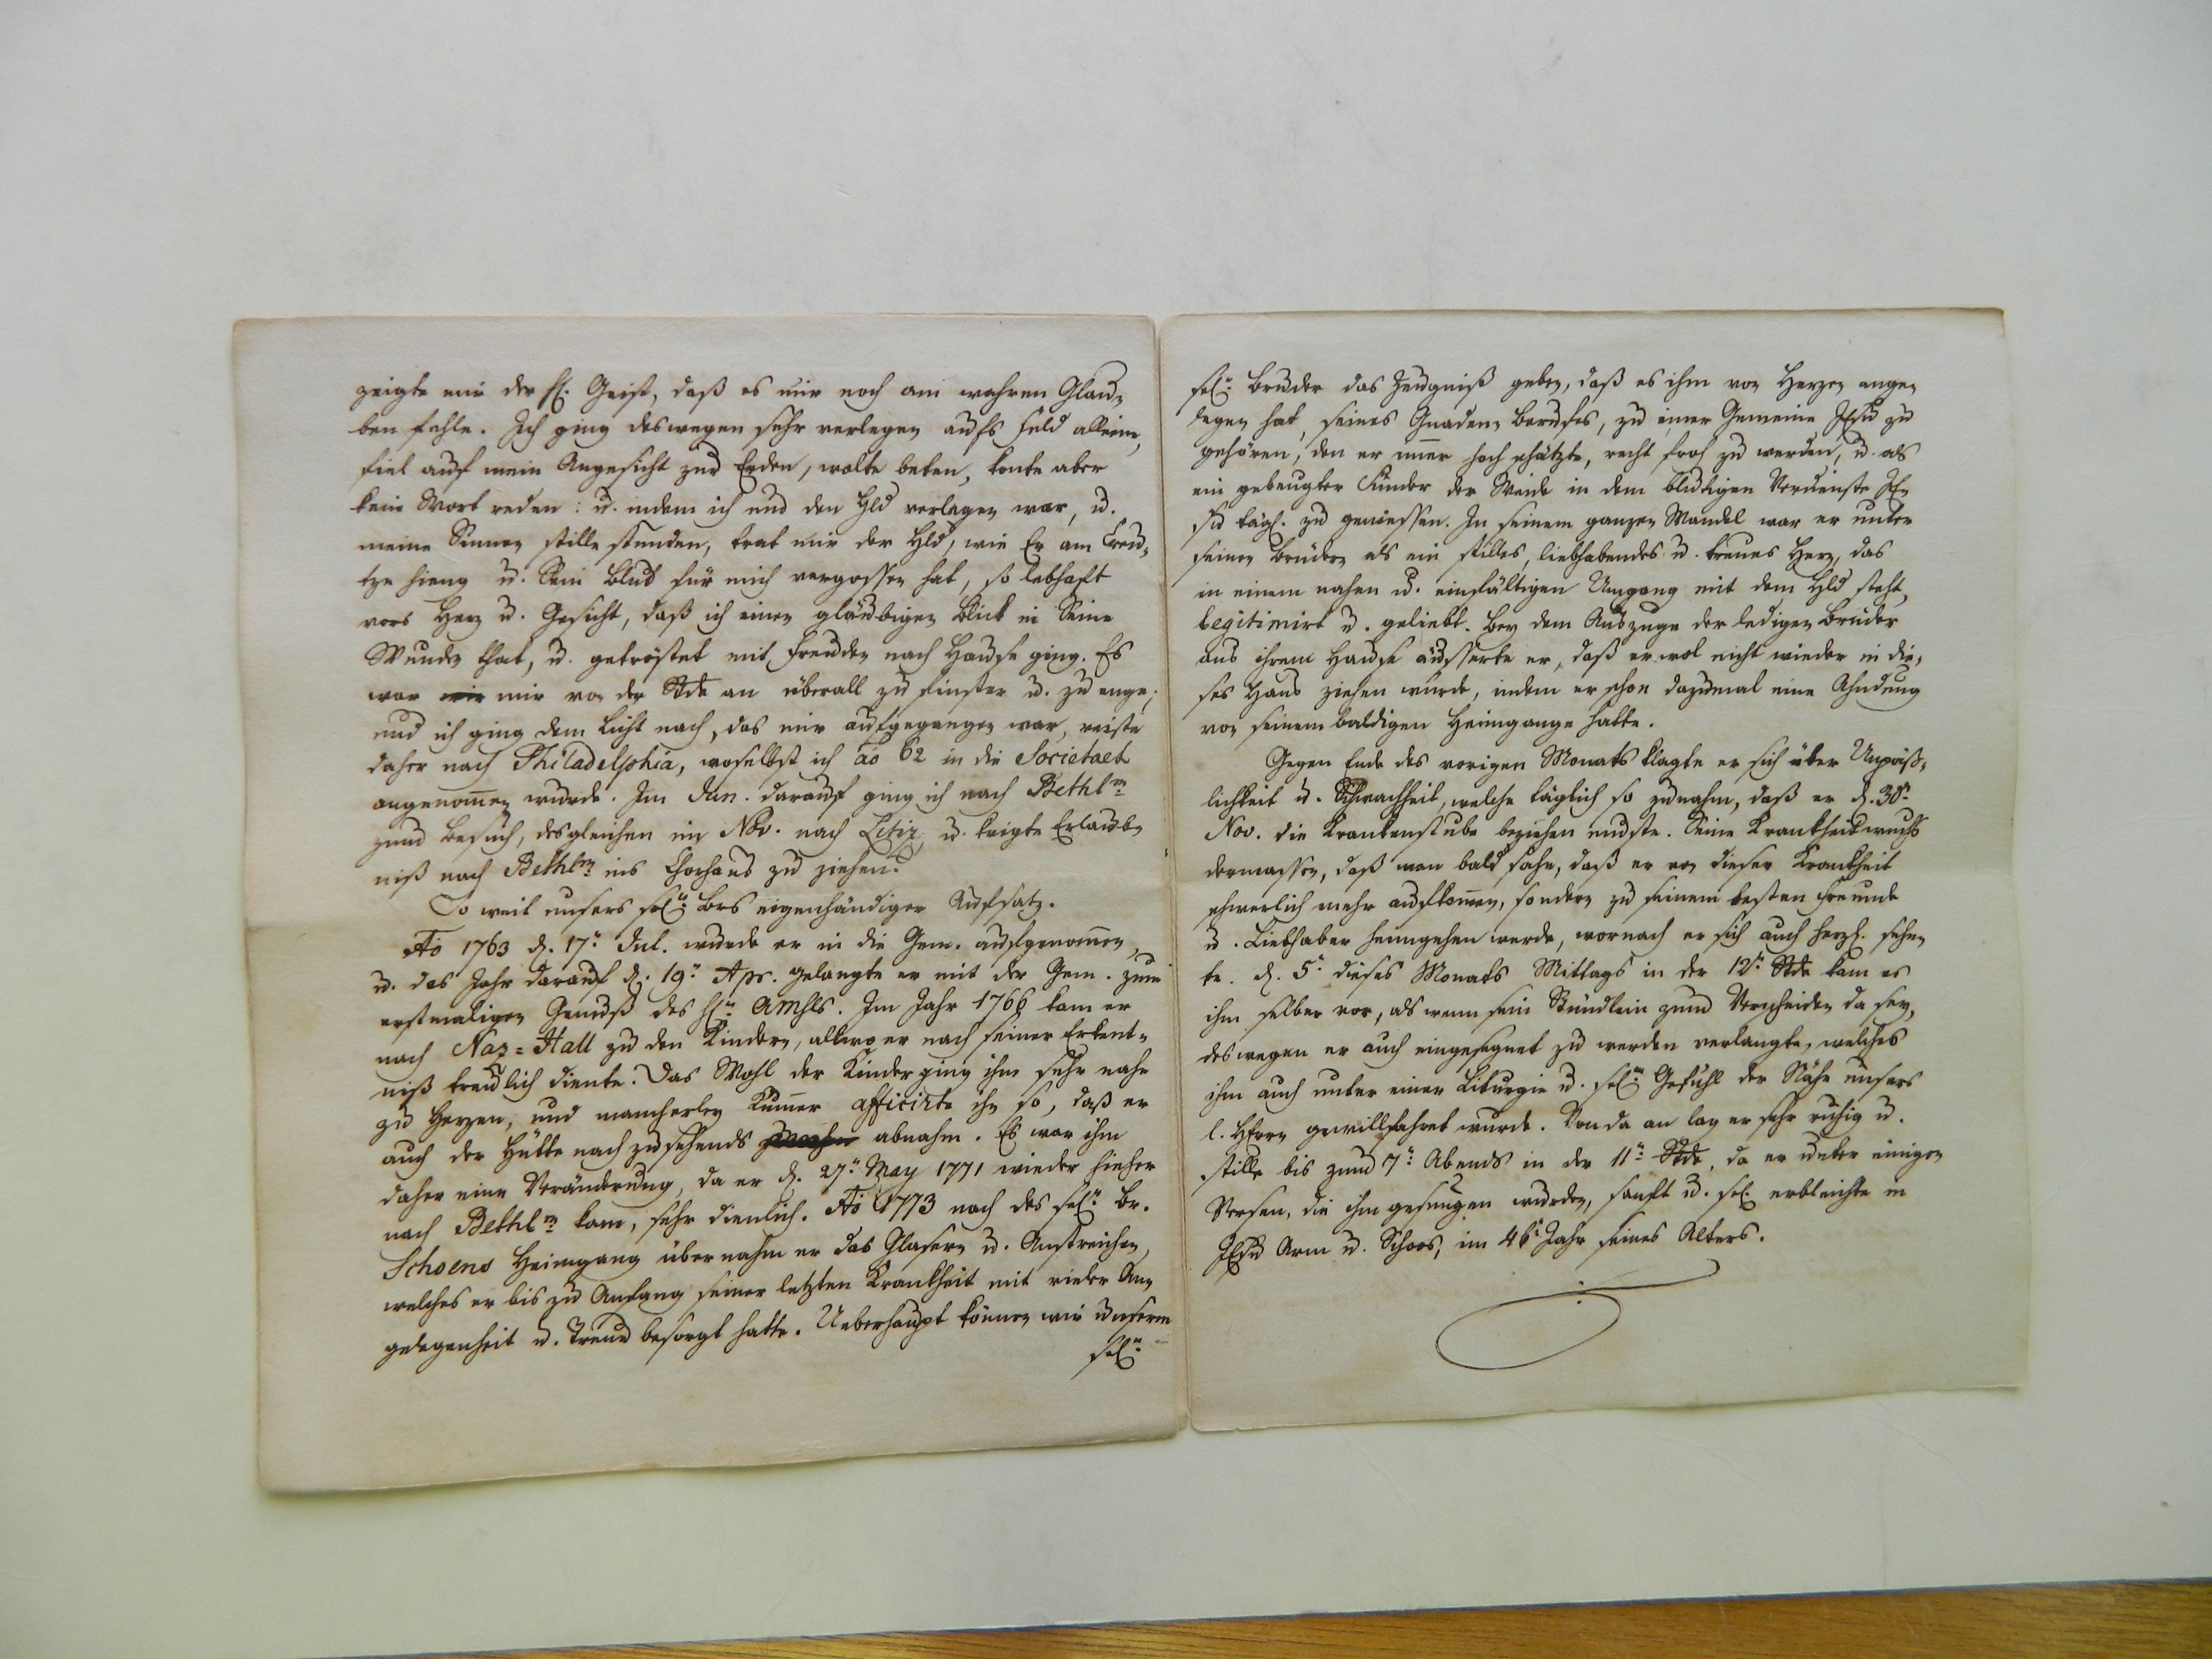 zeigte mir der hl. Geist, daß es mir noch am wahren Glau-
ben fehle. Ich ging deswegen sehr verlegen aufs Feld alleine,
fiel auf mein Angesicht zur Erden, wolte beten, konte aber
kein Wort reden: u. indem ich um den Hld verlegen war, u.
meine Sinnen stille stunden, trat mir der Hld, wie Er am Creu-
tze hieng u. Sein Blut für mich vergossen hat, so lebhaft
vors Herz u. Gesicht, daß ich einen gläubigen Blick in Seine
Wunden that, u. getröstet mit Freuden nach Hause ging. Es
war mir von der Stde an überall zu finster u. zu enge;
und ich ging dem Licht nach, das mir aufgegangen war, reiste
daher nach Philadelphia, woselbst ich ao 62 in die Societaet
angenom̅en wurde. Im Jun. darauf ging ich nach Bethlm
zum Besuch, desgleichen im Nov. nach Litiz, u. krigte Erlaub-
niß nach Bethlm ins Chorhaus zu ziehen.
So weit unsers seln Brs eigenhändiger Aufsatz.
Ao 1763 d. 17n Jul. wurde er in die Gem. aufgenom̅en,
u. das Jahr darauf d. 19n Apr. gelangte er mit der Gem. zum
erstmaligen Genuß des hln Amhls. Im Jahr 1766 kam er
nach Naz=Hall zu den Kindern, allwo er nach seiner Erkent-
niß treulich diente. Das Wohl der Kinder ging ihm sehr nahe
zu Herzen, und mancherley Kum̅er afficirte ihn so, daß er
auch der Hütte nach zusehends abnahm. Es war ihm
daher eine Veränderung, da er d. 27n May 1771 wieder hieher
nach Bethlm kam, sehr dienlich. Ao 1773 nach des seln Br.
Schoens Heimgang übernahm er das Glasern u. Anstreichen,
welches er bis zu Anfang seiner letzten Krankheit mit vieler An-
gelegenheit u. Treue besorgt hatte. Ueberhaupt können wir unserm
seln
seln Bruder das Zeugniß geben, daß es ihm von Herzen ange-
legen hat, seines Gnaden-Berufes, zu einer Gemeine JEsu zu
gehören, den er im̅er hoch schätzte, recht froh zu werden, u. als
ein gebeugter Sünder der Weide in dem blutigen Verdienste JE-
su tägl. zu geniessen. In seinem ganzen Wandel war er unter
seinen Brüdern als ein stilles, liebhabendes u. treues Herz, das
in einem nahen u. einfältigen Umgang mit dem Hld steht,
legitimirt u. geliebt. Bey dem Auszuge der ledigen Brüder
aus ihrem Hause äusserte er, daß er wol nicht wieder in die-
ses Haus ziehen würde, indem er schon dazumal eine Ahndung
von seinem baldigen Heimgange hatte.
Gegen Ende des vorigen Monats klagte er sich über Unpäß-
lichkeit u. Schwachheit, welche täglich so zunahm, daß er d. 30n
Nov. die Krankenstube beziehen muste. Seine Krankheit wuchs
dermassen, daß man bald sahe, daß er von dieser Krankheit
schwerlich mehr aufkom̅en, sondern zu seinem besten Freunde
u. Liebhaber heimgehen werde, wornach er sich auch herzl. sehn-
te. d. 5n dieses Monats Mittags in der 12n Stde kam es
ihm selber vor, als wenn sein Stündlein zum Verscheiden da sey,
deswegen er auch eingesegnet zu werden verlangte, welches
ihm auch unter einer Liturgie u. seln Gefühl der Nähe unsers
l. HErrn gewillfahret wurde. Von da an lag er sehr ruhig u.
stille bis zum 7n Abends in der 11n Stde, da er unter einigen
Versen, die ihm gesungen wurden, sanft u. sel. erbleichte in
JEsu Arm u. Schoos, im 46n Jahr seines Alters.